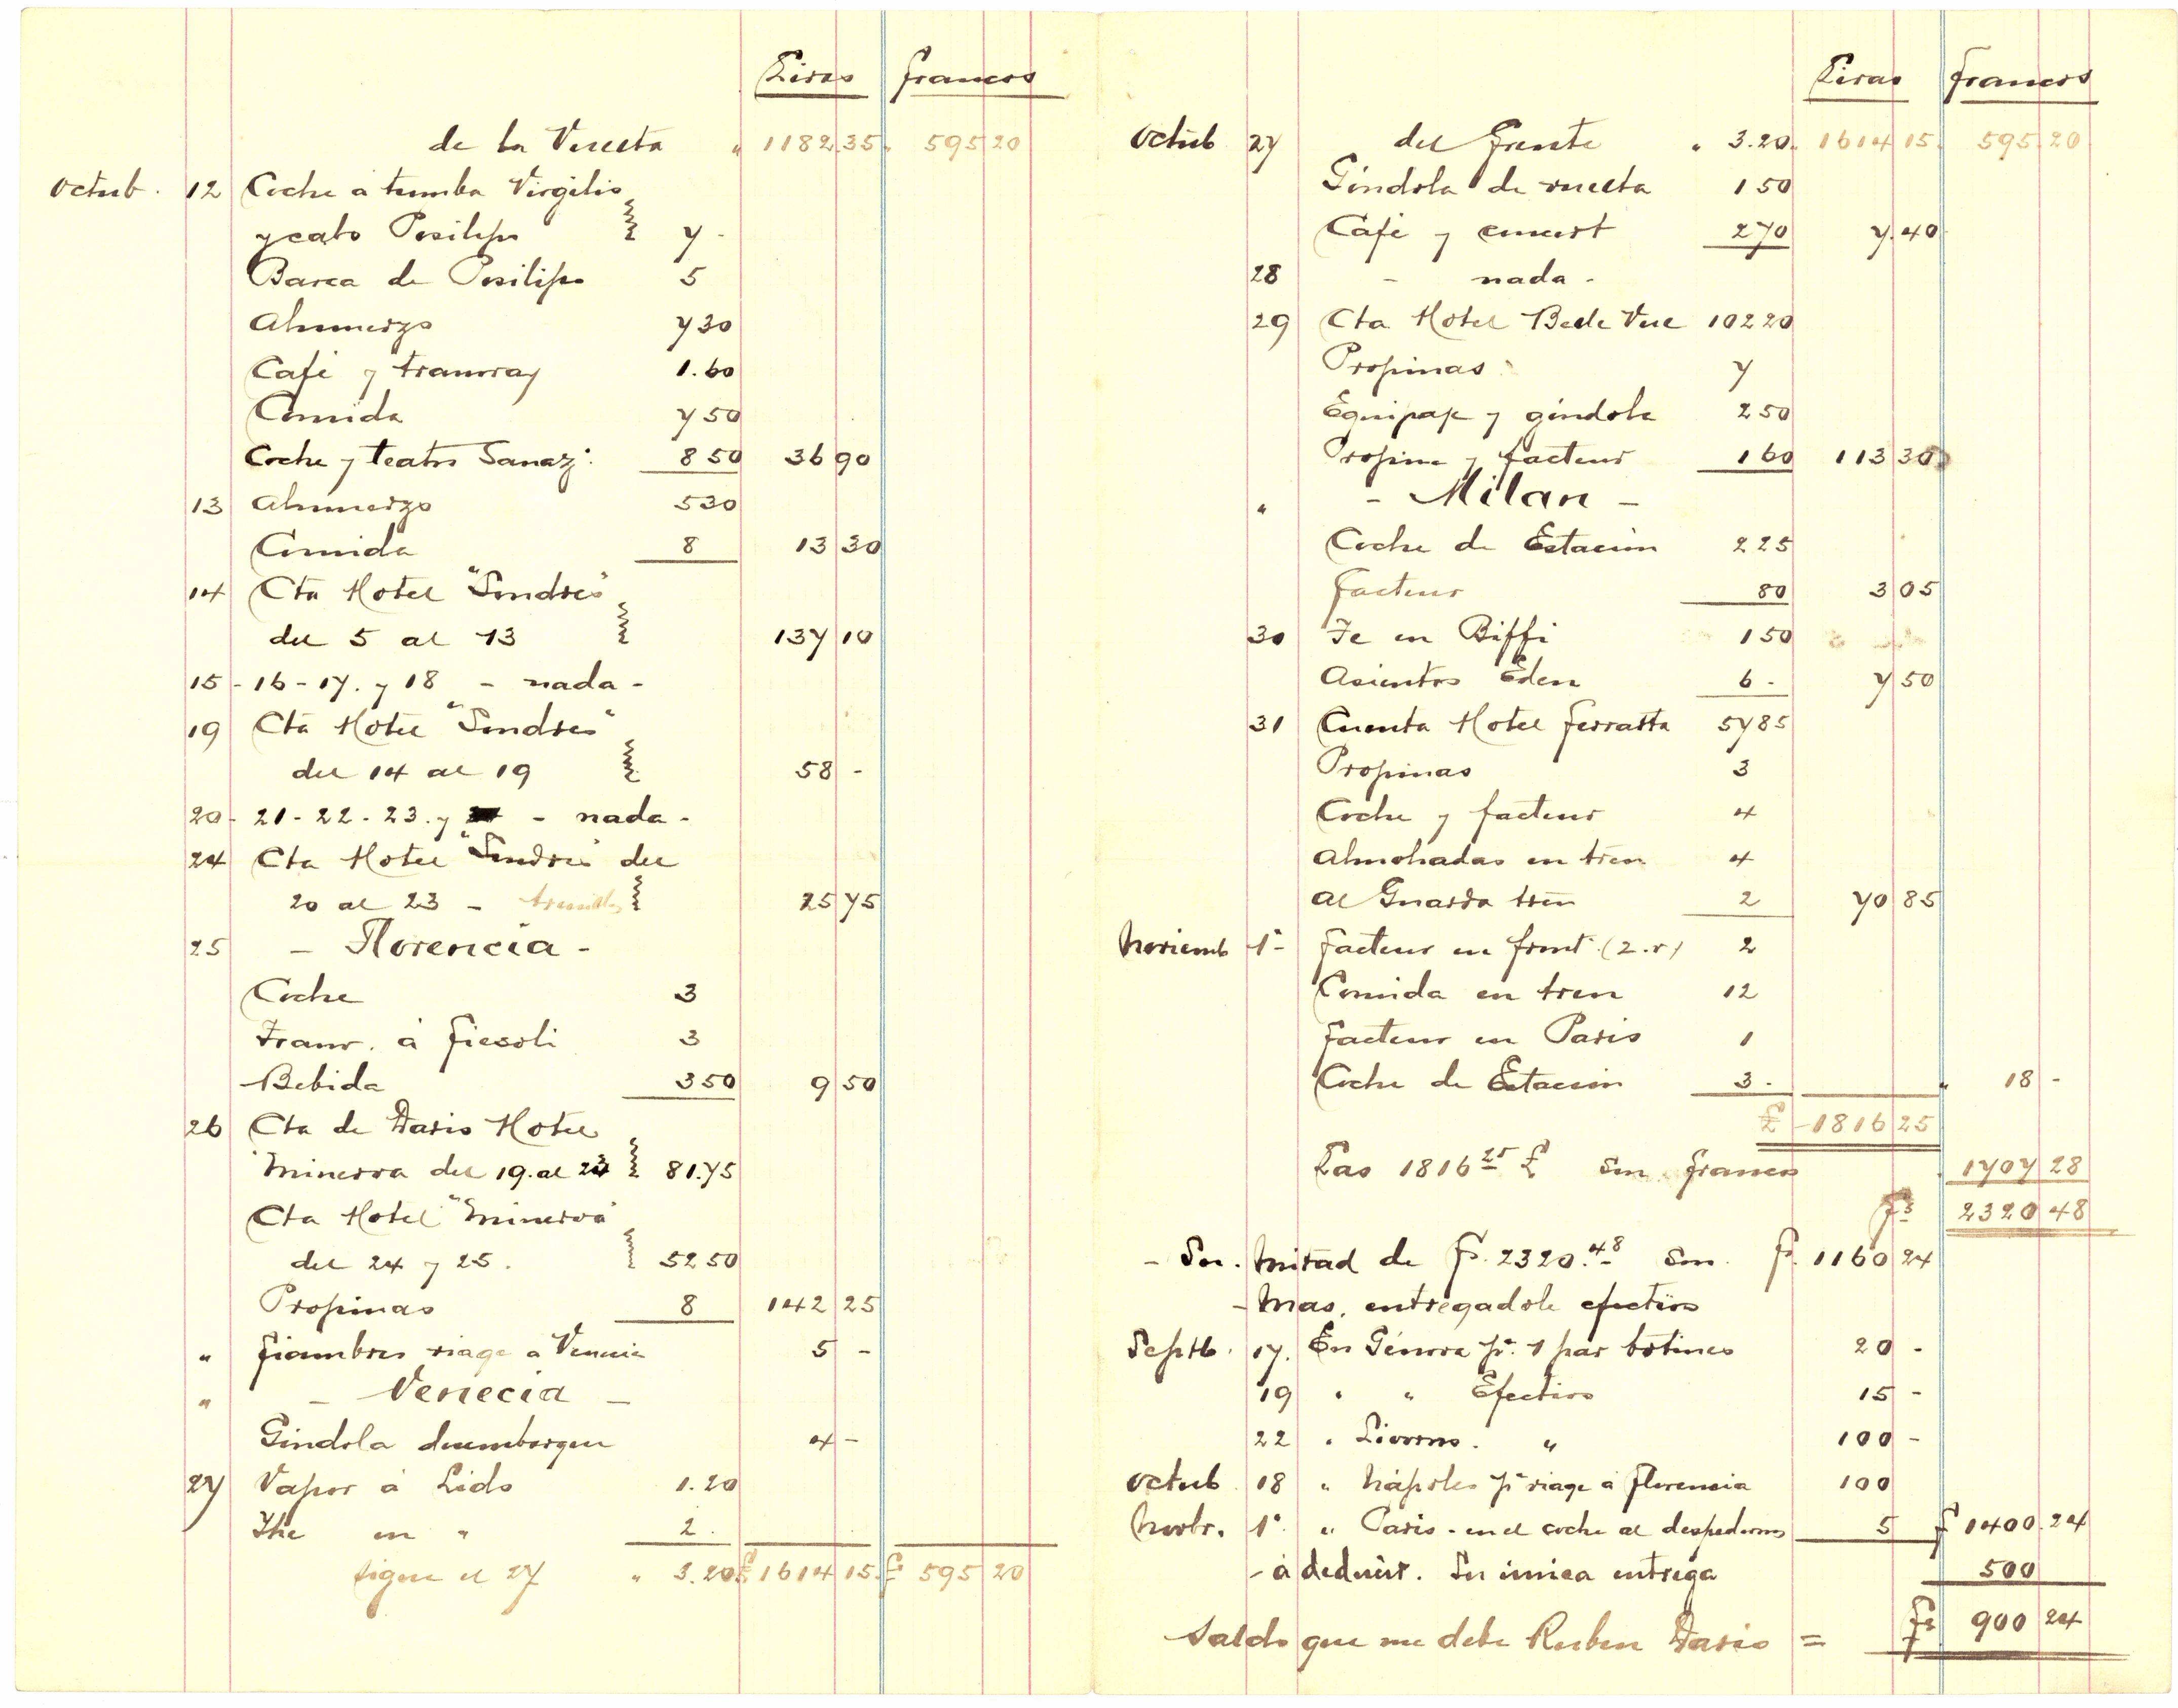 Liras francos
de la Vuelta " 1182 35 " 595 20
Octub. 12 Coche a tumba Virgilio
y cabo Posilipo 7 -
Barca de Posilipo 5
Almuerzo 7 30
Café y tramway 1.60
Comida 7 50
Coche y teatro Sanaz. 8 50 36 90
13 Almuerzo 5 30
Comida 8 13 30
14 Cta Hotel "Londres"
del 5 al 13 137 10
15 - 16 - 17. y 18 - nada -
19 Cta Hotel "Londres"
del 14 al 19 58 -
20 - 21 - 22 - 23. y - nada -
24 Cta Hotel "Londres" del
20 al 23 - 25 75
25 - Florencia -
Coche 3
Tranv. á Fiesoli 3
Bebida 3 50 9 50
26 Cta de Dario Hotel
Minerva del 19. al 23 81.75
Cta Hotel "Minerva"
del 24 y 25. 52 50
Propinas 8 142 25
" fiambres viage a Venecia 5 -
" - Venecia -
Góndola desembarque 4 -
27 Vapor á Lido 1.20
The en " 2.
sigue el 27 " 3.20 £ 1614 15 f 595 20
Liras francos
Octub 27 del frente " 3.20. 1614 15. 595 20
Góndola de vuelta 1 50
Café y concert 2 70 7.40
28 - nada -
29 Cta Hotel Belle Vue 102 20
Propinas 7
Equipaje y góndola 2 50
Propina y facteur 1 60 113 30
" - Milan -
Coche de Estacion 2 25
facteur 80 3 05
30 Te en Biffi 1 50
Asientos Eden 6 - 7 50
31 Cuenta Hotel Ferratta 57 85
Propinas 3
Coche y facteur 4
Almohadas en tren 4
Al Guarda tren 2 70 85
Noviemb 1° facteur en front. (2.v) 2
Comida en tren 12
facteur en Paris 1
Coche de Estacion 3 - " 18 -
£ - 1816 25
Las 1816 25 £ son francos 1707 28
fs 2320 48
- Su. Mitad de f. 2320.48 son f. 1160 24
- Mas, entregadole efectivo
Septb. 17. En Génova pr. 1 par botines 20 -
19 " " Efectivo 15 -
22 " Livorno. " 100 -
Octub 18 " Nápoles pa viage á Florencia 100
Novbr. 1°. " Paris - en el coche al despedirnos 5 f 1400.24
- á deducir. Su única entrega 500
Saldo que me debe Ruben Dario = fs 900 24